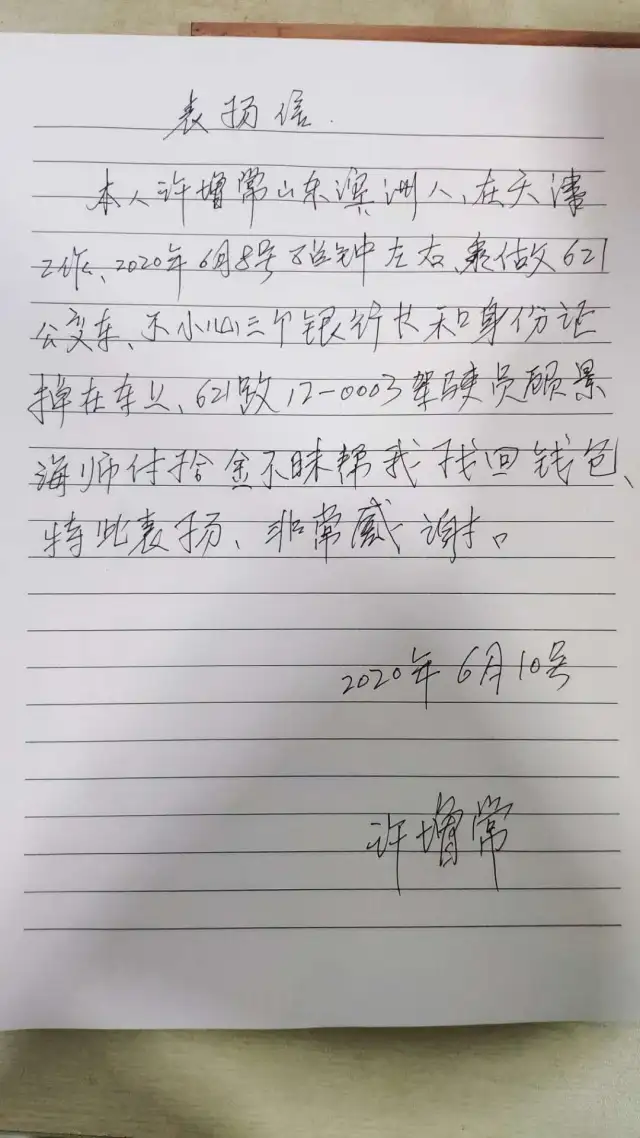 表扬信.
本人许增常山东滨洲人、在天津
工作、2020年6月8号8点钟左右、乘做621
公交车、不小心三个银行卡和身份证
掉在车上、621路12-0003驾驶员顾景
海师付拾金不昧帮我找回钱包、
特此表扬、非常感谢。
2020年6月10号
许增常